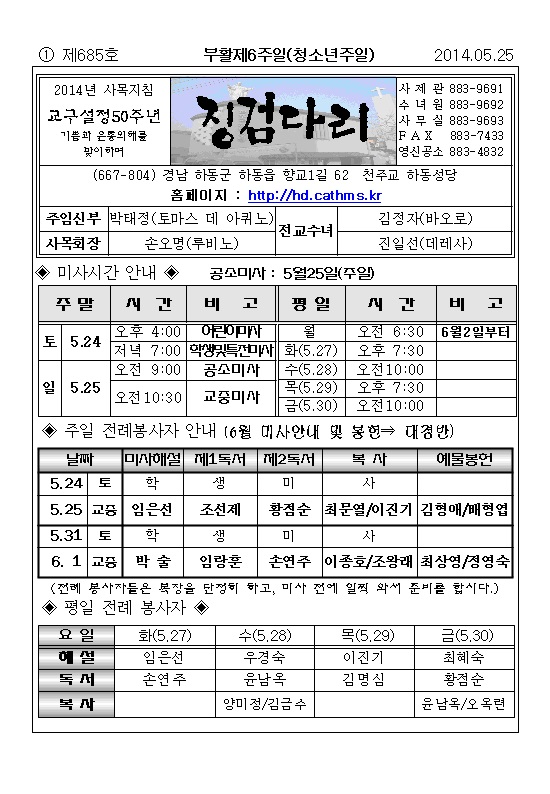 ① 제685호 부활제6주일(청소년주일) 2014.05.25
2014년 사목지침
교구설정50주년
기쁨과 은총의해를
맞이하며
징검다리
사 제 관 883-9691
수 녀 원 883-9692
사 무 실 883-9693
F A X 883-7433
영신공소 883-4832
(667-804) 경남 하동군 하동읍 향교1길 62 천주교 하동성당
홈페이지 : http://hd.cathms.kr
주임신부 박태정(토마스 데 아퀴노) 전교수녀 김정자(바오로)
사목회장 손오명(루비노) 진일선(데레사)
◈ 미사시간 안내 ◈ 공소미사 : 5월25일(주일)
주 말 시 간 비 고 평 일 시 간 비 고
토 5.24 오후 4:00 어린이미사 월 오전 6:30 6월2일부터
저녁 7:00 학생및특전미사 화(5.27) 오후 7:30
일 5.25 오전 9:00 공소미사 수(5.28) 오전10:00
오전10:30 교중미사 목(5.29) 오후 7:30
금(5.30) 오전10:00
◈ 주일 전례봉사자 안내 (6월 미사안내 및 봉헌⇒ 대경반)
날짜 미사해설 제1독서 제2독서 복 사 예물봉헌
5.24 토 학 생 미 사
5.25 교중 임은선 조선제 황점순 최문열/이진기 김형애/배형엽
5.31 토 학 생 미 사
6. 1 교중 박 술 임랑훈 손연주 이종호/조왕래 최상영/정영숙
(전례 봉사자들은 복장을 단정히 하고, 미사 전에 일찍 와서 준비를 합시다.)
◈ 평일 전례 봉사자 ◈
요 일 화(5.27) 수(5.28) 목(5.29) 금(5.30)
해 설 임은선 우경숙 이진기 최혜숙
독 서 손연주 윤남옥 김명심 황점순
복 사 양미정/김금수 윤남옥/오옥련